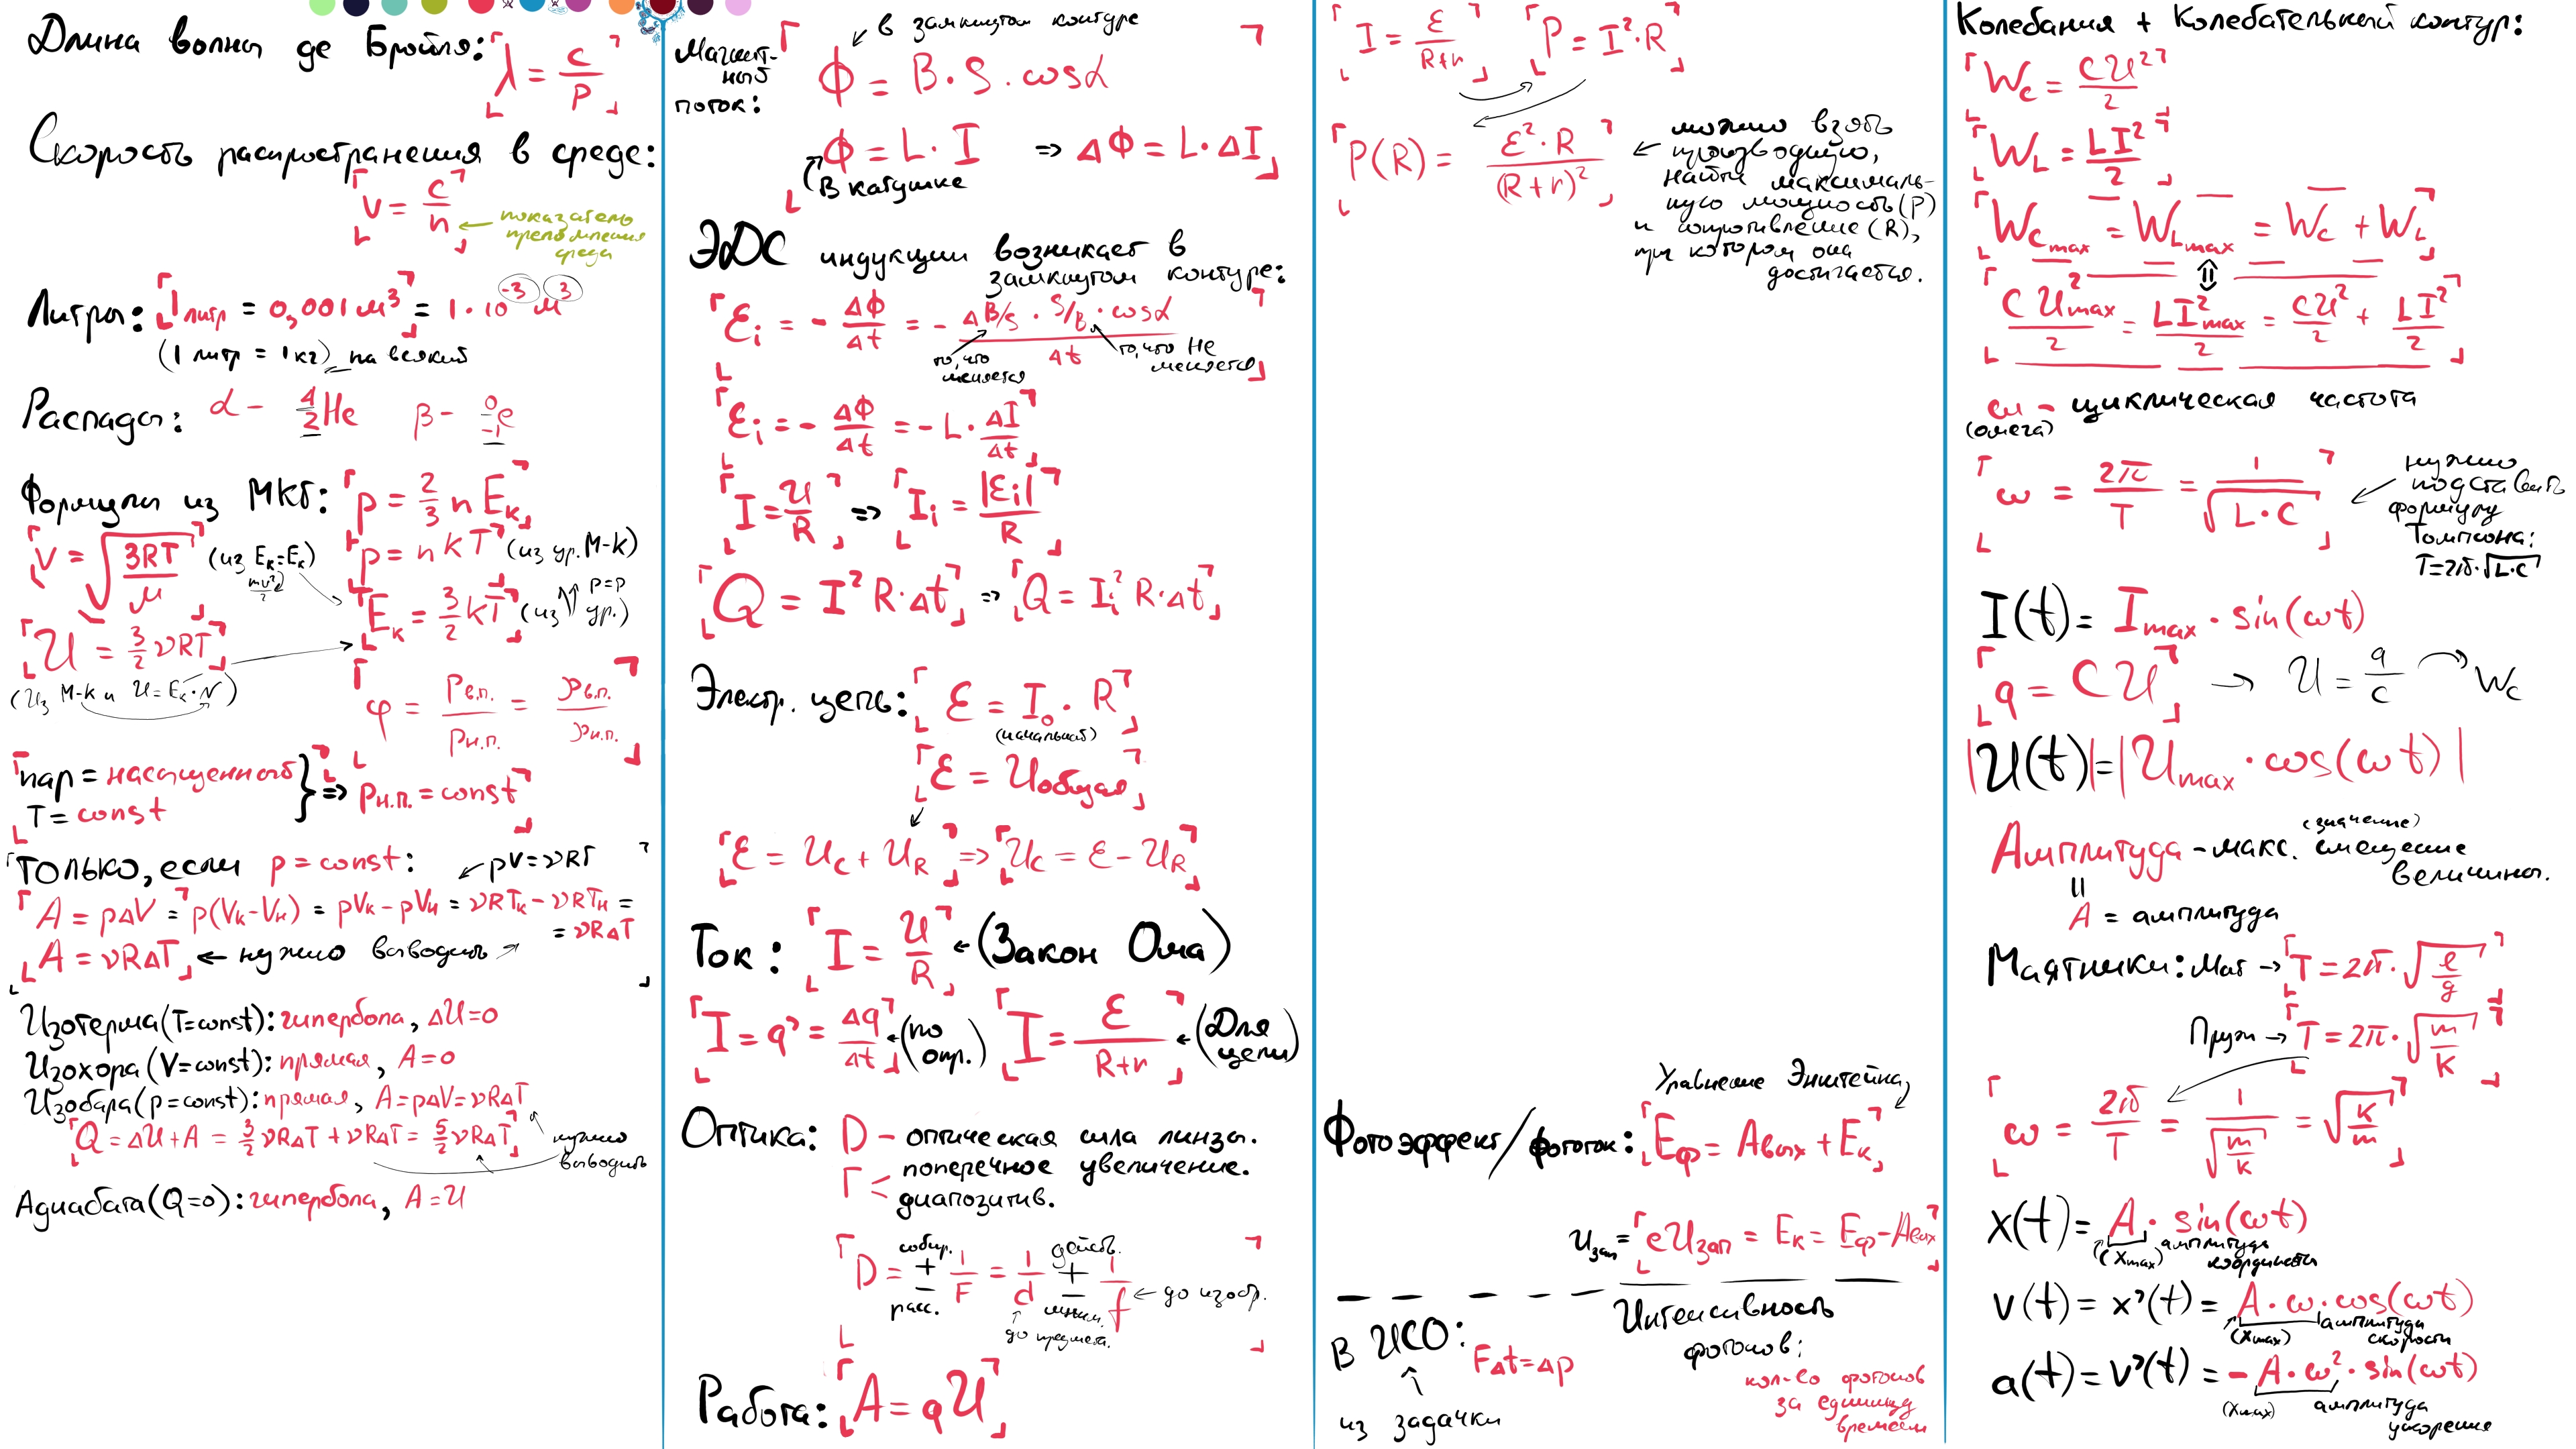 Длина волны де Бройля: λ = c/p
Скорость распространения в среде:
v = c/n ← показатель преломления среды
Литры: 1 литр = 0,001 м³ = 1·10⁻³ м³
(1 литр = 1 кг) ← на всякий
Распады: α – ⁴₂He β – ⁰₋₁e
Формулы из МКТ: p = 2/3 n Eк
v = √(3RT/M) (из Eк = Eк) mv²/2
p = nkT (из ур. М-К)
Eк = 3/2 kT (из ↑↑ p=p ур.)
U = 3/2 νRT
(Из М-К и U = Eк·N)
φ = pв.п./pн.п. = ρв.п./ρн.п.
пар = насыщенный
T = const } => pн.п. = const
ТОЛЬКО, если p = const: ↙ pV = νRT
A = pΔV = p(Vк - Vн) = pVк - pVн = νRTк - νRTн =
= νRΔT
A = νRΔT ← нужно выводить ↗
Изотерма (T=const): гипербола, ΔU=0
Изохора (V=const): прямая, A=0
Изобара (p=const): прямая, A=pΔV=νRΔT
Q = ΔU + A = 3/2 νRΔT + νRΔT = 5/2 νRΔT
нужно
выводить
Адиабата (Q=0): гипербола, A=U
Магнитный поток: ↙ в замкнутом контуре
Φ = B·S·cosα
Φ = L·I => ΔΦ = L·ΔI
В катушке
ЭДС индукции возникает в
замкнутом контуре:
Ɛi = - ΔΦ/Δt = - (ΔB/S · S/B · cosα)/Δt
то, что меняется
то, что не меняется
Ɛi = - ΔΦ/Δt = - L·ΔI/Δt
I = U/R => Ii = |Ɛi|/R
Q = I²R·Δt => Q = Ii²R·Δt
Электр. цепь: Ɛ = I₀·R
(начальный)
Ɛ = Uобщая
Ɛ = UC + UR => UC = Ɛ - UR
Ток: I = U/R ← (Закон Ома)
I = q' = Δq/Δt ← (по опр.) I = Ɛ/(R+r) ← (Для цепи)
Оптика: D – оптическая сила линзы.
Г – поперечное увеличение.
диапозитив.
D = ± 1/F = 1/d ± 1/f ← до изобр.
собир.
расс.
действ.
мним.
до предмета.
Работа: A = qU
I = Ɛ/(R+r) P = I²·R
P(R) = Ɛ²·R/(R+r)²
← можно взять
производную,
найти максималь-
ную мощность (P)
и сопротивление (R),
при котором она
достигается.
Уравнение Энштейна
Фотоэффект/фототок: Eф = Aвых + Eк
Uзап = eUзап = Eк = Eф - Aвых
В ИСО: FΔt = Δp
из задачки
Интенсивность
фотонов:
кол-во фотонов
за единицу
времени
Колебания + Колебательный контур:
WC = CU²/2
WL = LI²/2
WCmax = WLmax = WC + WL
CU²max/2 = LI²max/2 = CU²/2 + LI²/2
ω – циклическая частота
(омега)
ω = 2π/T = 1/√(L·C)
нужно
подставить
формулу
Томпсона:
T=2π·√(L·C)
I(t) = Imax·sin(ωt)
q = CU → U = q/C ↷ WC
|U(t)| = |Umax·cos(ωt)|
(значение)
Амплитуда – макс. смещение
величины.
A = амплитуда
Маятники: Мат → T = 2π·√(ℓ/g)
Пруж → T = 2π·√(m/k)
ω = 2π/T = 1/√(m/k) = √(k/m)
x(t) = A·sin(ωt)
(xmax) амплитуда
координаты
v(t) = x'(t) = A·ω·cos(ωt)
(xmax) амплитуда
скорости
a(t) = v'(t) = -A·ω²·sin(ωt)
(xmax) амплитуда
ускорения